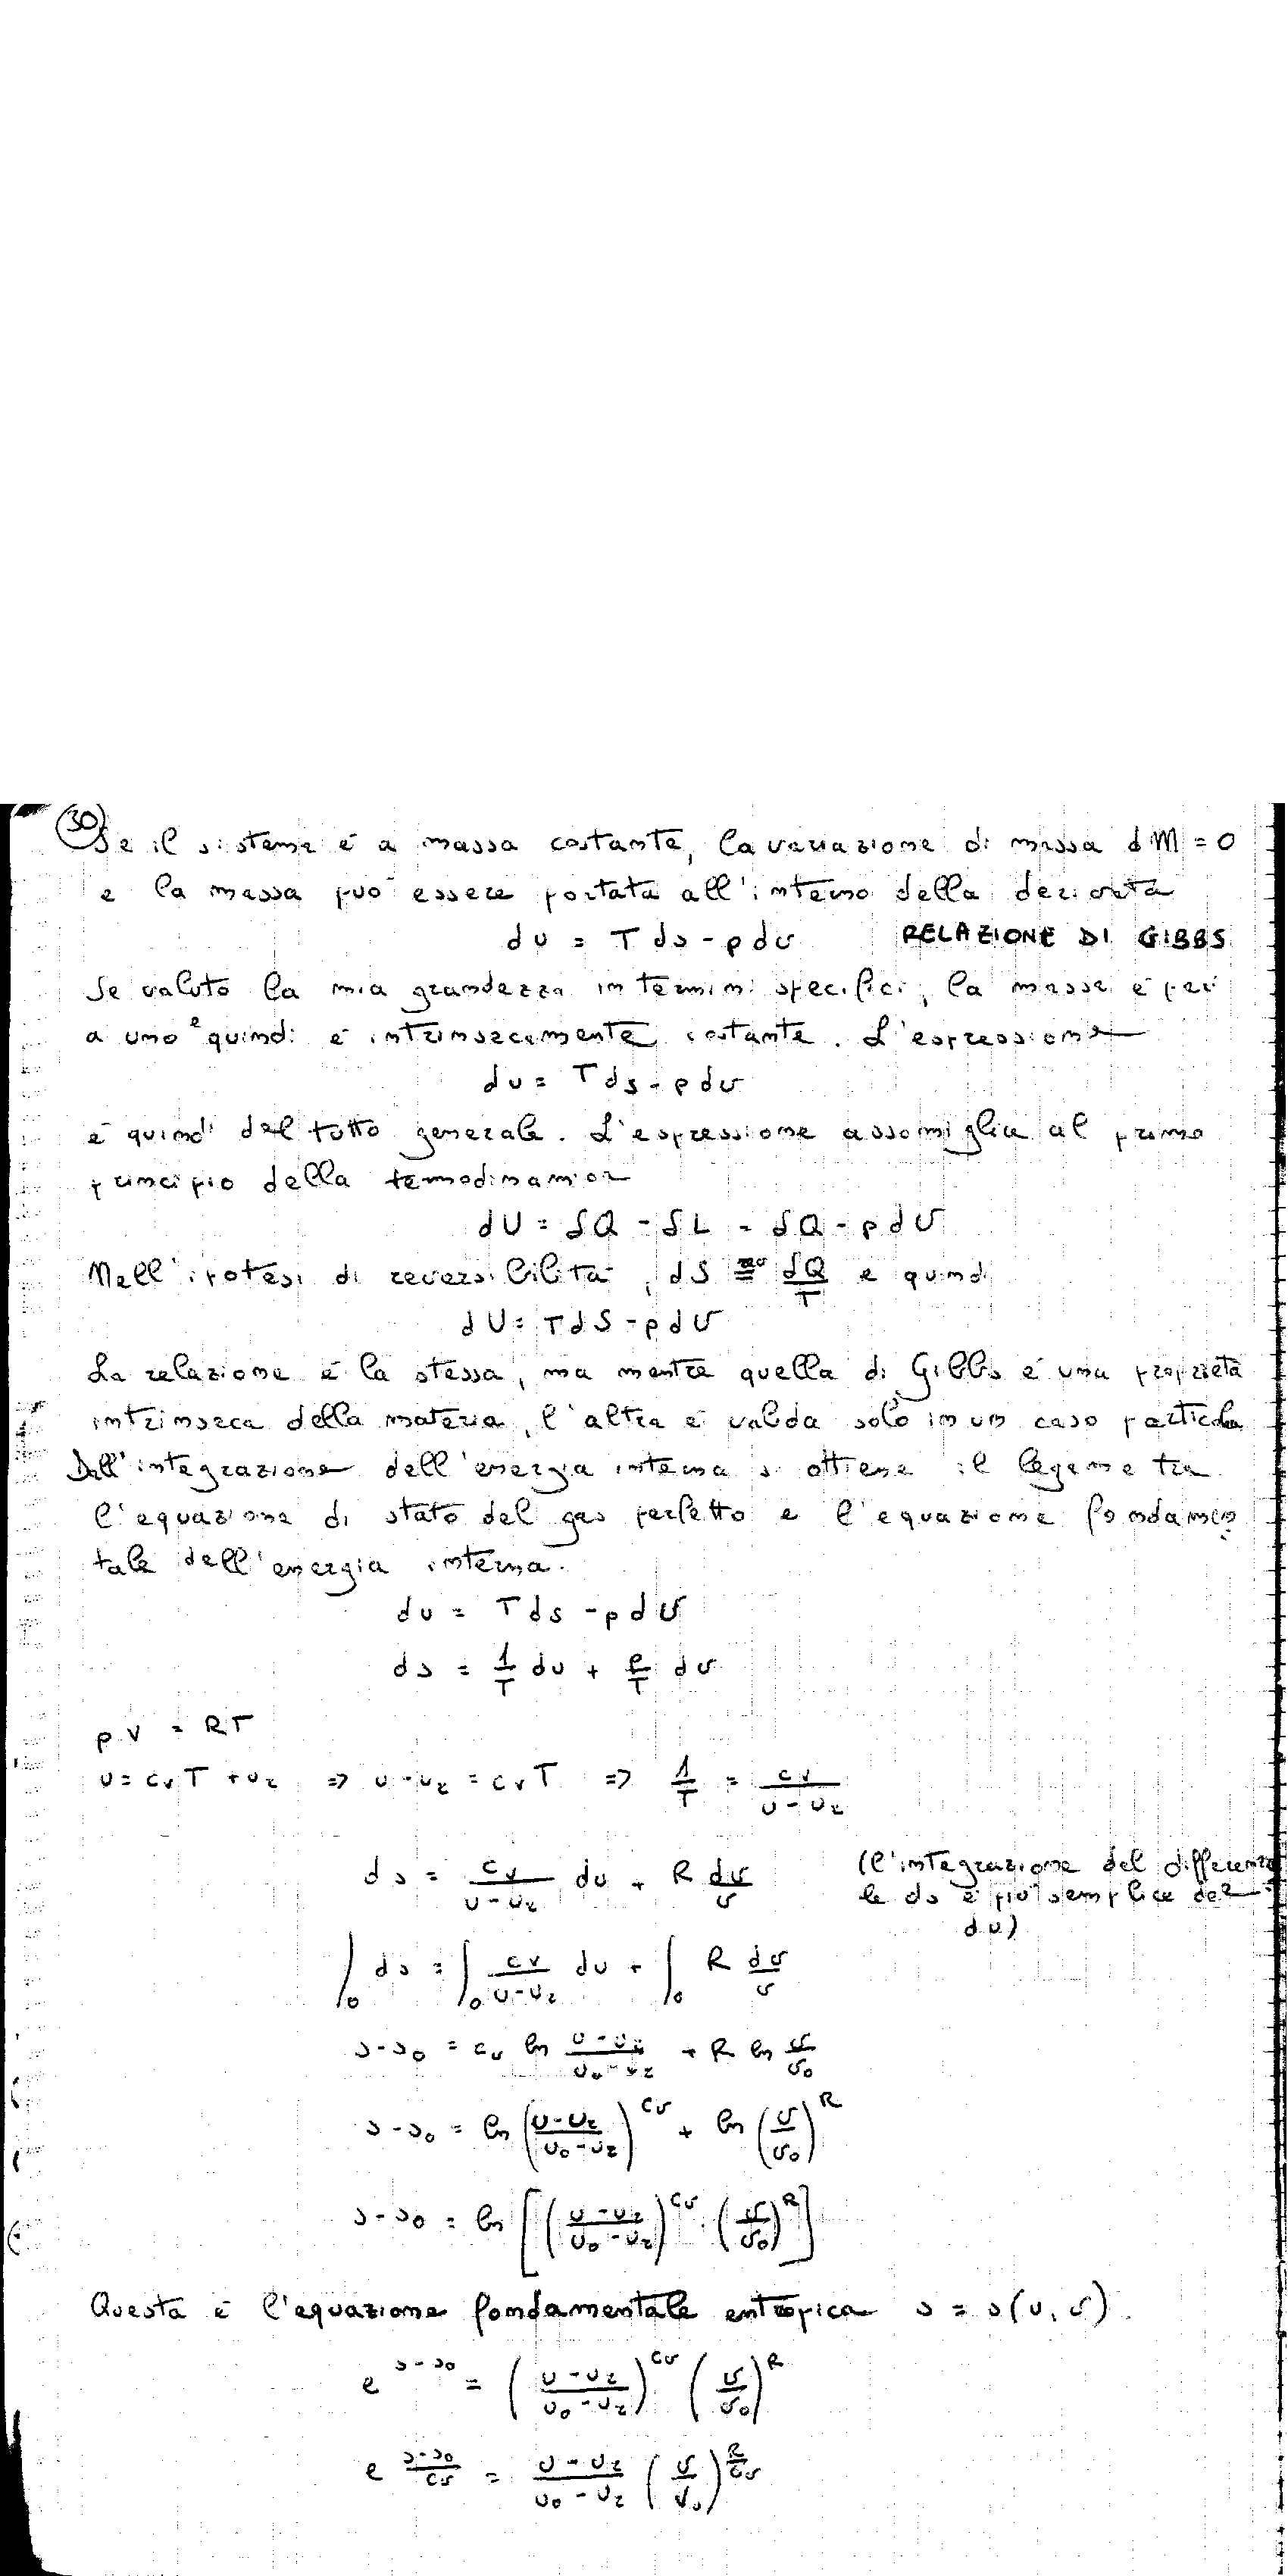 30
Se il sistema è a massa costante, la variazione di massa dM = 0
e la massa può essere portata all'interno della derivata
du = T ds - p dv RELAZIONE DI GIBBS
Se valuto la mia grandezza in termini specifici, la massa è pari
a uno e quindi è intrinsecamente costante. L'espressione
du = T ds - p dv
è quindi del tutto generale. L'espressione assomiglia al primo
principio della termodinamica
dU = δQ - δL = δQ - p dV
Nell'ipotesi di reversibilità, dS = δQ/T e quindi
dU = T dS - p dV
La relazione è la stessa, ma mentre quella di Gibbs è una proprietà
intrinseca della materia, l'altra è valida solo in un caso particola
Dall'integrazione dell'energia interna si ottiene il legame tra
l'equazione di stato del gas perfetto e l'equazione fondamen
tale dell'energia interna.
du = T ds - p dv
ds = 1/T du + p/T dv
p v = RT
u = cv T + uz => u - uz = cv T => 1/T = cv/(u - uz)
ds = cv/(u - uz) du + R dv/v (l'integrazione del differenzia
le ds è più semplice del
du)
∫0 ds = ∫0 cv/(u - uz) du + ∫0 R dv/v
s - s0 = cv ln (u - uz)/(u0 - uz) + R ln v/v0
s - s0 = ln ((u - uz)/(u0 - uz))^cv + ln (v/v0)^R
s - s0 = ln [((u - uz)/(u0 - uz))^cv (v/v0)^R]
Questa è l'equazione fondamentale entropica s = s(u, v).
e^(s - s0) = ((u - uz)/(u0 - uz))^cv (v/v0)^R
e^((s - s0)/cv) = (u - uz)/(u0 - uz) (v/v0)^(R/cv)